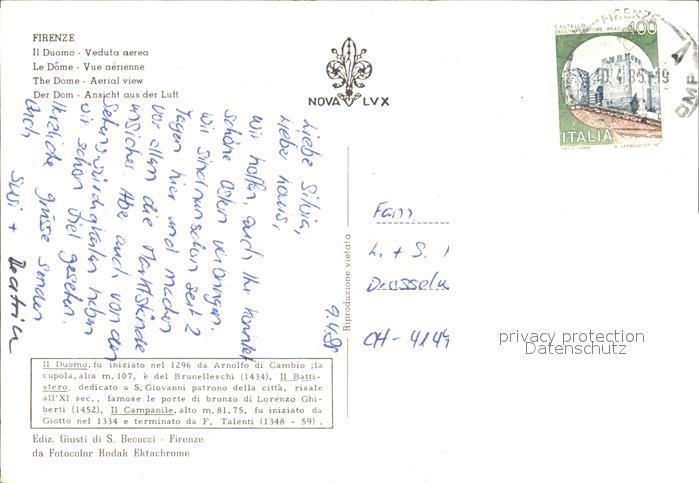 FIRENZE
Il Duomo - Veduta aerea
Le Dôme - Vue aérienne
The Dome - Aerial view
Der Dom - Ansicht aus der Luft
NOVA LVX
CASTELLO
DELL'IMPERATORE - PRATO
400
ITALIA
FIRENZE
10.4.85-19
9.4.85
Liebe Silvia,
lieber Hans,
wir hoffen, auch Ihr konntet
schöne Ostern verbringen.
Wir sind nun schon seit 2
Tagen hier und machen
vor allem die Marktstände
unsicher. Aber auch von den
Sehenswürdigkeiten haben
wir schon viel gesehen.
Herzliche Grüsse senden
Euch
Susi + Beatrice
Riproduzione vietata
Fam
L. + S.
CH - 4147
privacy protection
Datenschutz
Il Duomo, fu iniziato nel 1296 da Arnolfo di Cambio ; la
cupola, alta m. 107, è del Brunelleschi (1434), Il Batti-
stero, dedicato a S. Giovanni patrono della città, risale
all'XI sec., famose le porte di bronzo di Lorenzo Ghi-
berti (1452), Il Campanile, alto m. 81,75, fu iniziato da
Giotto nel 1334 e terminato da F. Talenti (1348 - 59).
Ediz. Giusti di S. Becocci - Firenze
da Fotocolor Kodak Ektachrome